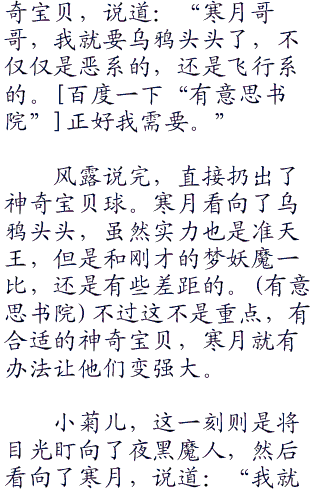 奇宝贝，说道：“寒月哥
哥，我就要乌鸦头头了，不
仅仅是恶系的，还是飞行系
的。[百度一下“有意思书
院”]正好我需要。”
风露说完，直接扔出了
神奇宝贝球。寒月看向了乌
鸦头头，虽然实力也是准天
王，但是和刚才的梦妖魔一
比，还是有些差距的。(有意
思书院)不过这不是重点，有
合适的神奇宝贝，寒月就有
办法让他们变强大。
小菊儿，这一刻则是将
目光盯向了夜黑魔人，然后
看向了寒月，说道：“我就